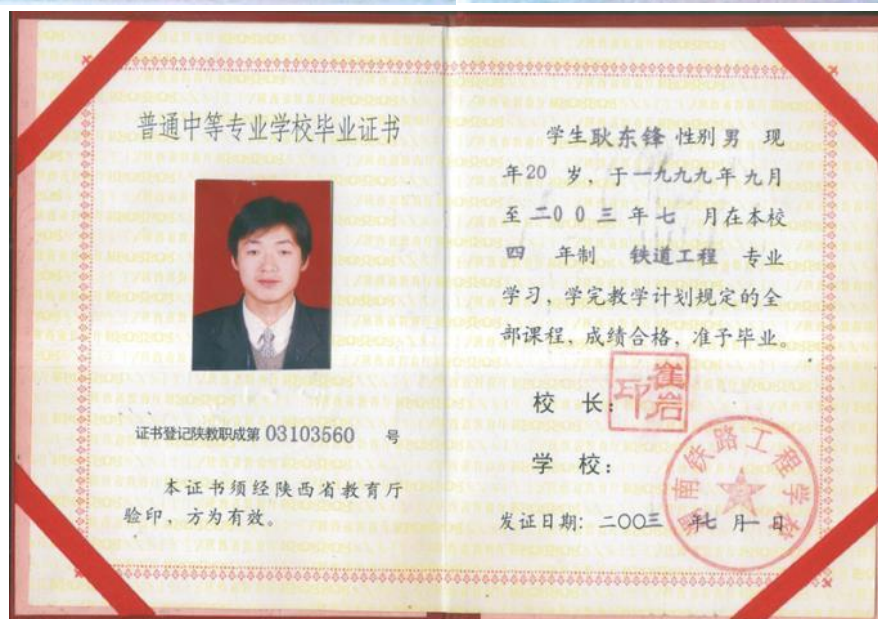 普通中等专业学校毕业证书
证书登记陕教职成第 03103560 号
本证书须经陕西省教育厅
验印，方为有效。
学生耿东锋 性别 男 现
年20 岁，于一九九九年九月
至二00三年七 月在本校
四 年制 铁道工程 专业
学习，学完教学计划规定的全
部课程，成绩合格，准予毕业。
校 长：
崔岩印
学 校：
渭南铁路工程学校
发证日期：二〇〇三 年七 月一 日